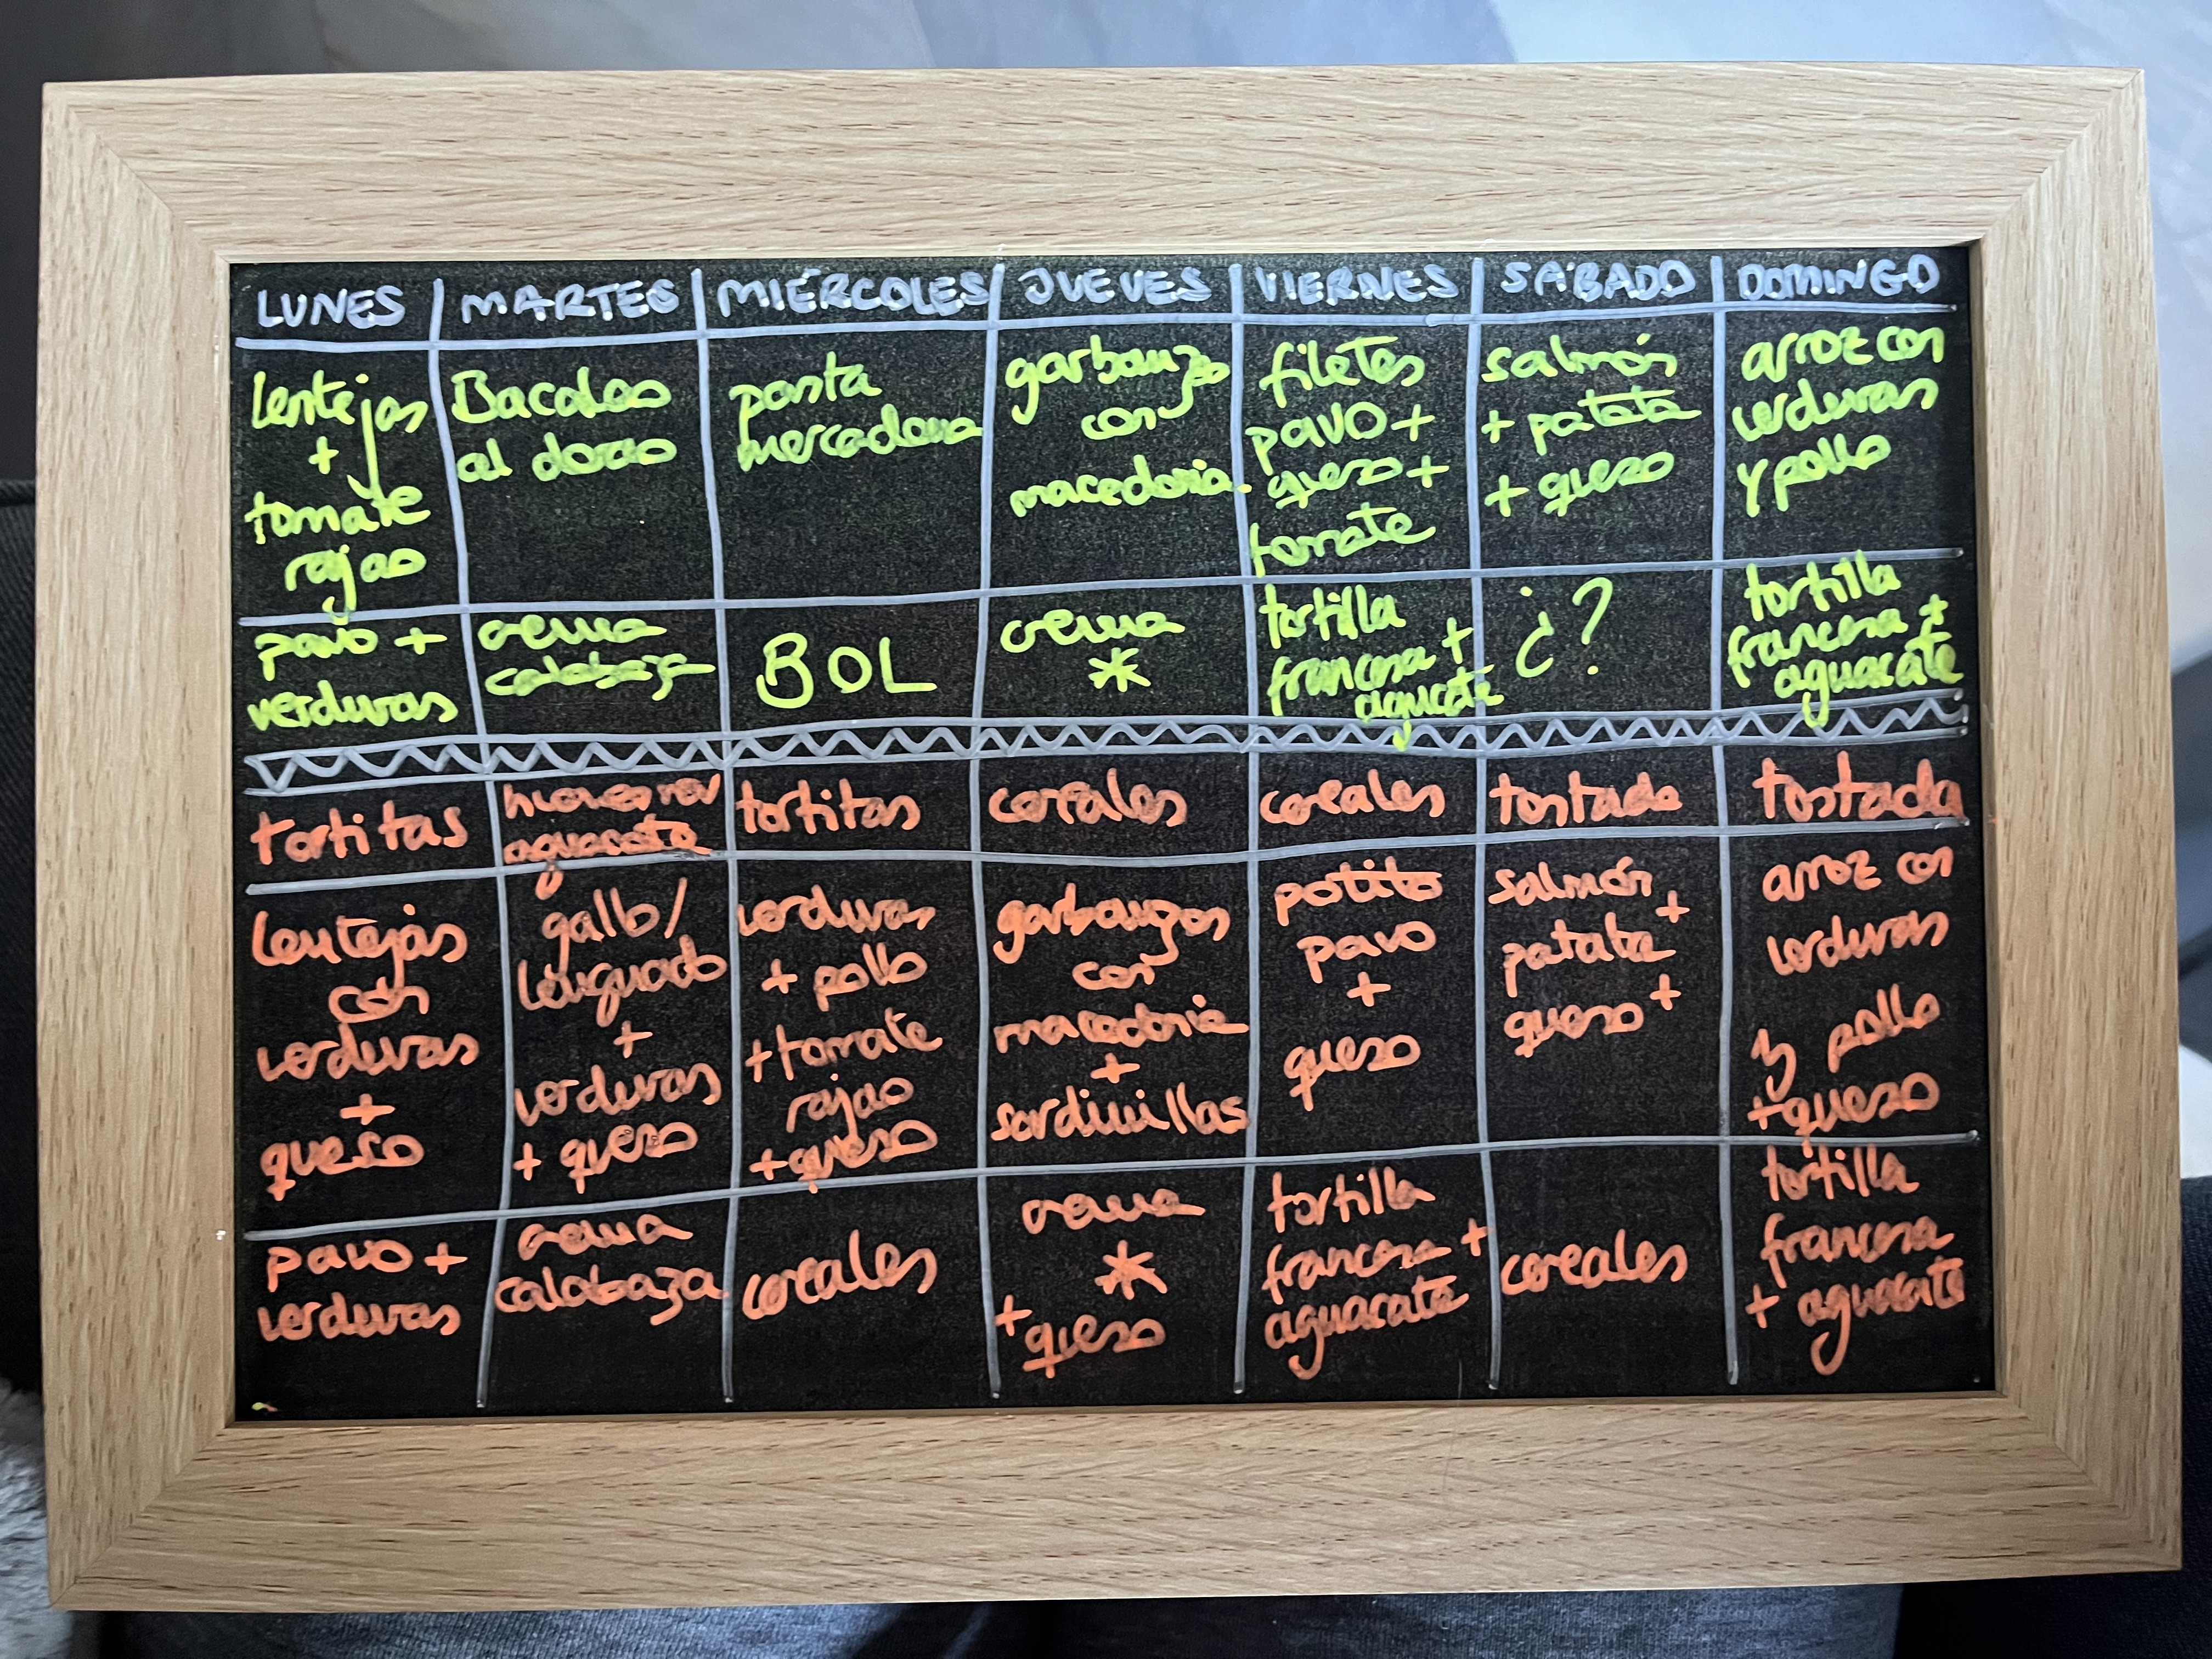 LUNES MARTES MIÉRCOLES JUEVES VIERNES SÁBADO DOMINGO
lentejas
+
tomate
rajao
Bacalao
al dorao
pasta
mercadona
garbanzos
con
macedonia.
filetes
pavo +
queso +
tomate
salmón
+ patata
+ queso
arroz con
verduras
y pollo
pavo +
verduras
crema
calabaza
BOL
crema
*
tortilla
francesa +
aguacate
¿?
tortilla
francesa +
aguacate
tortitas
aguacate
tortitas
cereales
cereales
tostada
tostada
lentejas
con
verduras
+
queso
gallo/
lenguado
+
verduras
+ queso
verduras
+ pollo
+ tomate
rajao
+ queso
garbanzos
con
macedonia
+
sardinillas
potito
pavo
+
queso
salmón +
patata +
queso
arroz con
verduras
y pollo
+ queso
pavo +
verduras
crema
calabaza
cereales
crema
*
+ queso
tortilla
francesa +
aguacate
cereales
tortilla
francesa
+ aguacate